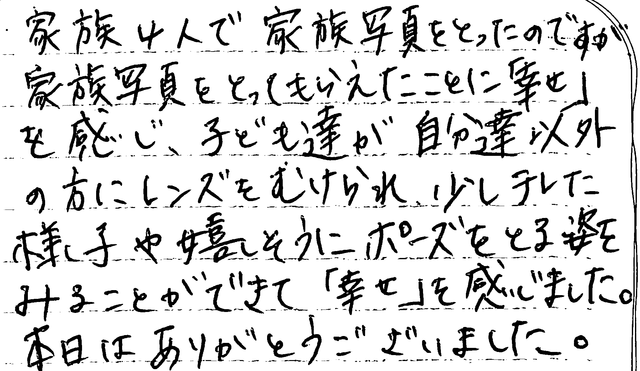 家族4人で家族写真をとったのですが
家族写真をとってもらえたことに「幸せ」
を感じ、子ども達が自分達以外
の方にレンズをむけられ、少しテレた
様子や嬉しそうにポーズをとる姿を
みることができて「幸せ」を感じました。
本日はありがとうございました。